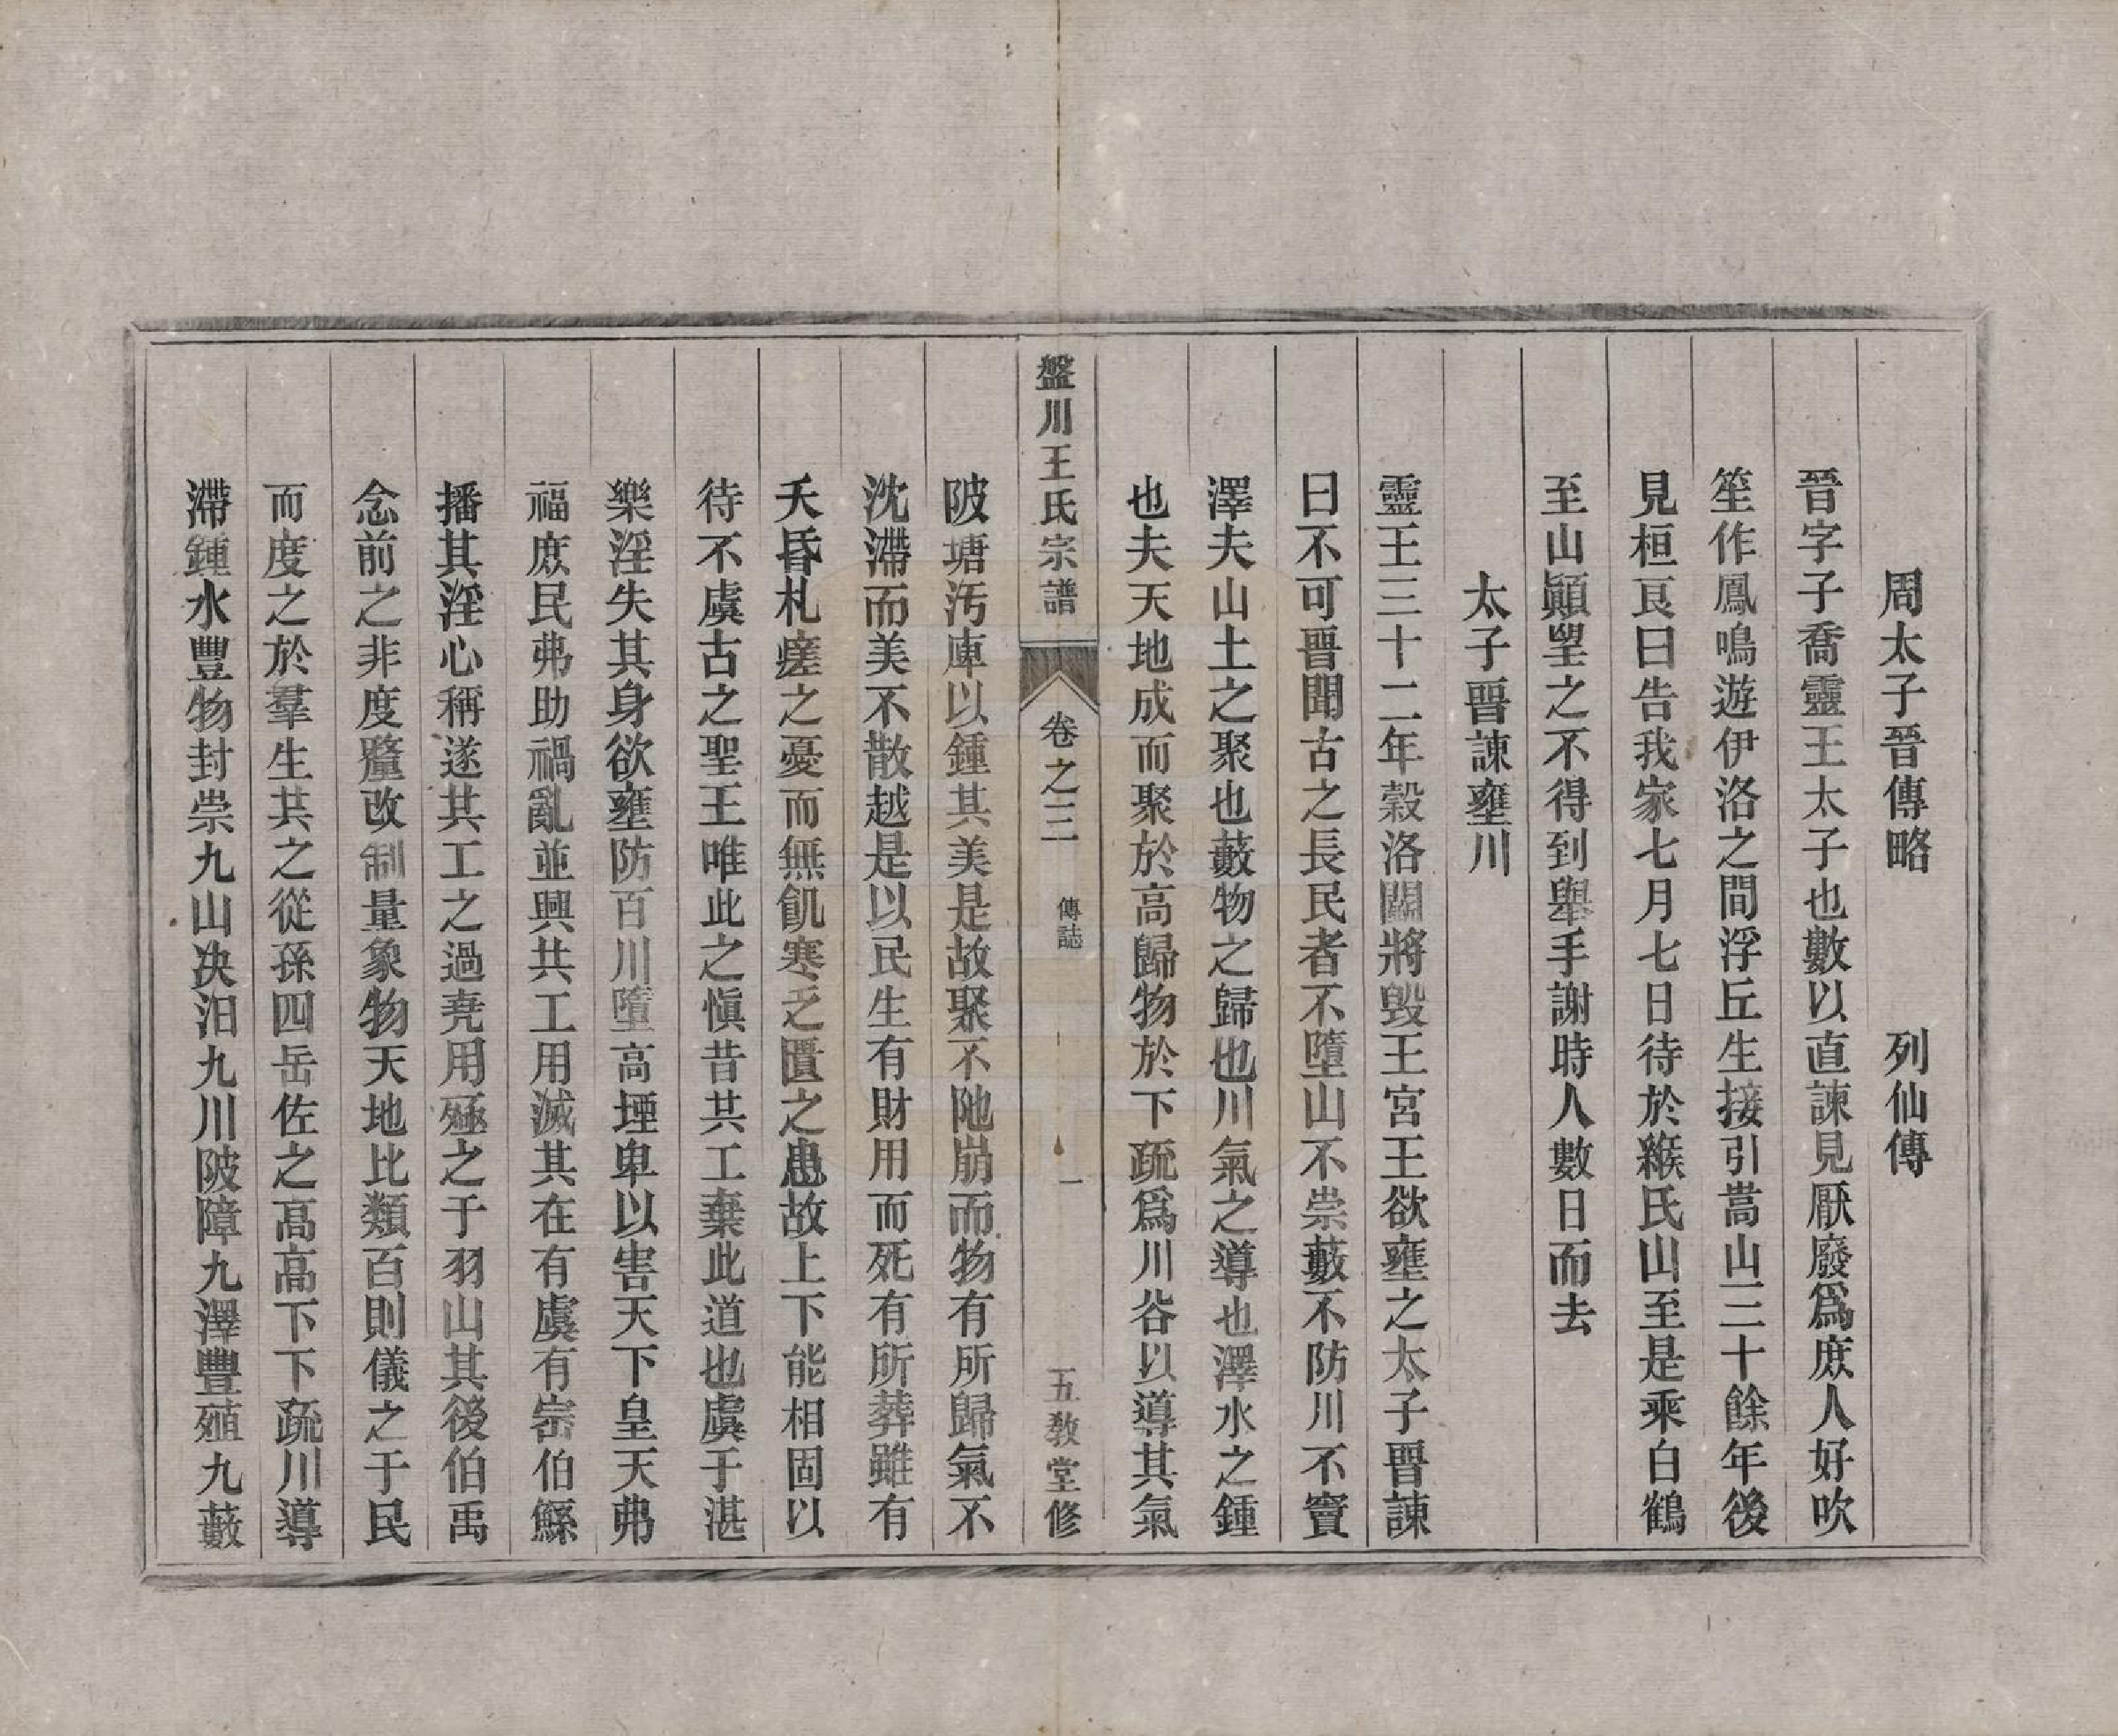 周太子晉傳略　列仙傳
晉字子喬靈王太子也數以直諫見厭廢爲庶人好吹
笙作鳳鳴遊伊洛之間浮丘生接引嵩山三十餘年後
見桓良曰告我家七月七日待於緱氏山至是乘白鶴
至山顚望之不得到舉手謝時人數日而去
太子晋諫壅川
靈王三十二年穀洛鬭將毀王宮王欲壅之太子晋諫
曰不可晋聞古之長民者不墮山不崇藪不防川不竇
澤夫山土之聚也藪物之歸也川氣之導也澤水之鍾
也夫天地成而聚於高歸物於下疏爲川谷以導其氣
盤川王氏宗譜　卷之三　傳誌　一　五教堂修
陂塘汚庳以鍾其美是故聚不阤崩而物有所歸氣不
沈滯而美不散越是以民生有財用而死有所葬雖有
夭昏札瘥之憂而無飢寒乏匱之患故上下能相固以
待不虞古之聖王唯此之愼昔共工棄此道也虞于湛
樂淫失其身欲壅防百川墮高堙卑以害天下皇天弗
福庶民弗助禍亂並興共工用滅其在有虞有崇伯鯀
播其淫心稱遂其工之過堯用殛之于羽山其後伯禹
念前之非度釐改制量象物天地比類百則儀之于民
而度之於羣生共之從孫四岳佐之高高下下疏川導
滯鍾水豐物封崇九山決汨九川陂障九澤豐殖九藪